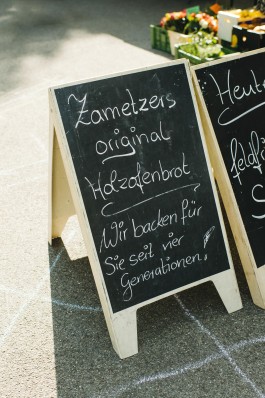 Zametzers
original
Holzofenbrot
Wir backen für
Sie seit vier
Generationen!
Heut
feldf
S